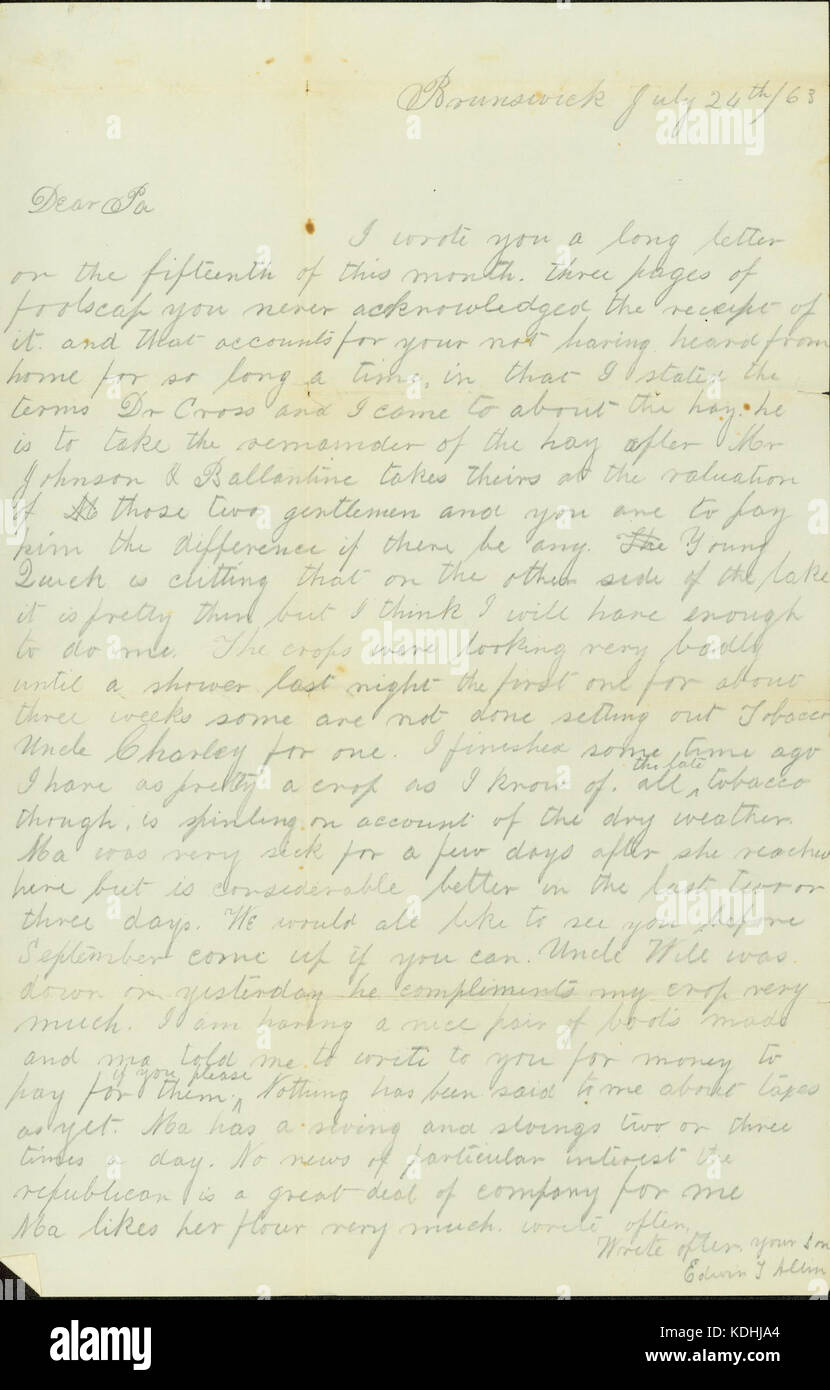 Brunswick July 24th/63
Dear Pa
I wrote you a long letter
on the fifteenth of this month. three pages of
foolscap you never acknowledged the receipt of
it. and that accounts for your not having heard from
home for so long a time, in that I stated the
terms Dr Cross and I came to about the hay. he
is to take the remainder of the hay after Mr
Johnson & Ballantine takes theirs at the valuation
of those two gentlemen and you are to pay
him the difference if there be any. The Young
Quick is cutting that on the other side of the lake
it is pretty thin but I think I will have enough
to do me. The crops were looking very badly
until a shower last night the first one for about
three weeks some are not done setting out Tobacco
Uncle Charley for one. I finished some time ago
I have as pretty a crop as I know of. all the late tobacco
though, is spindling on account of the dry weather.
Ma was very sick for a few days after she reached
here but is considerable better in the last two or
three days. We would all like to see you before
September come up if you can. Uncle Will was
down on yesterday he compliments my crop very
much. I am having a nice pair of boots made
and ma told me to write to you for money to
pay for them. if you please Nothing has been said to me about taxes
as yet. Ma has a swing and swings two or three
times a day. No news of particular interest the
republican is a great deal of company for me
Ma likes her flour very much. write often.
Write often. your Son
Edwin T Allin
alamy stock photo
KDHJA4
www.alamy.com